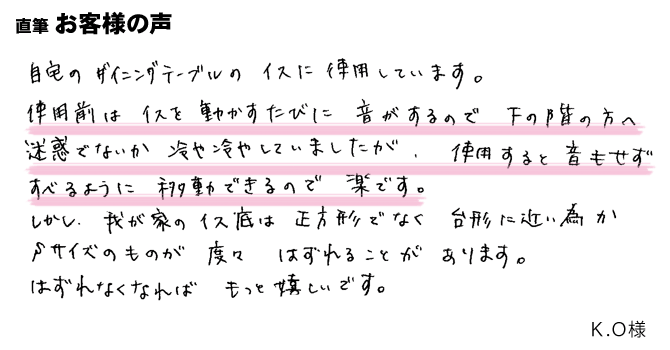 直筆 お客様の声
自宅のダイニングテーブルの イスに 使用しています。
使用前は イスを 動かすたびに 音がするので 下の階の方へ
迷惑でないか 冷や冷やしていましたが、使用すると 音もせず
すべるように 移動できるので 楽です。
しかし、我が家のイス底は 正方形でなく 台形に近い為か
Sサイズのものが 度々 はずれることが あります。
はずれなくなれば もっと嬉しいです。
K.O様